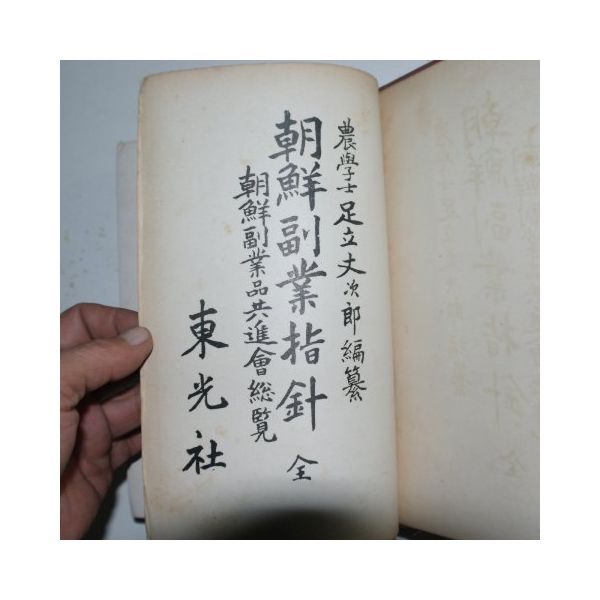 農學士足立丈次郎編纂
朝鮮副業指針 全
朝鮮副業品共進會総覧
東光社